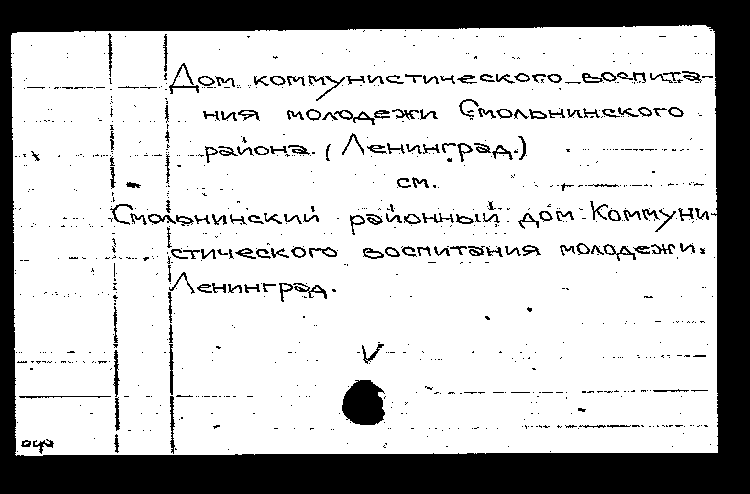 Дом коммунистического воспита-
ния молодежи Смольнинского
района. (Ленинград.)
см.
Смольнинский районный дом Коммуни-
стического воспитания молодежи.
Ленинград.